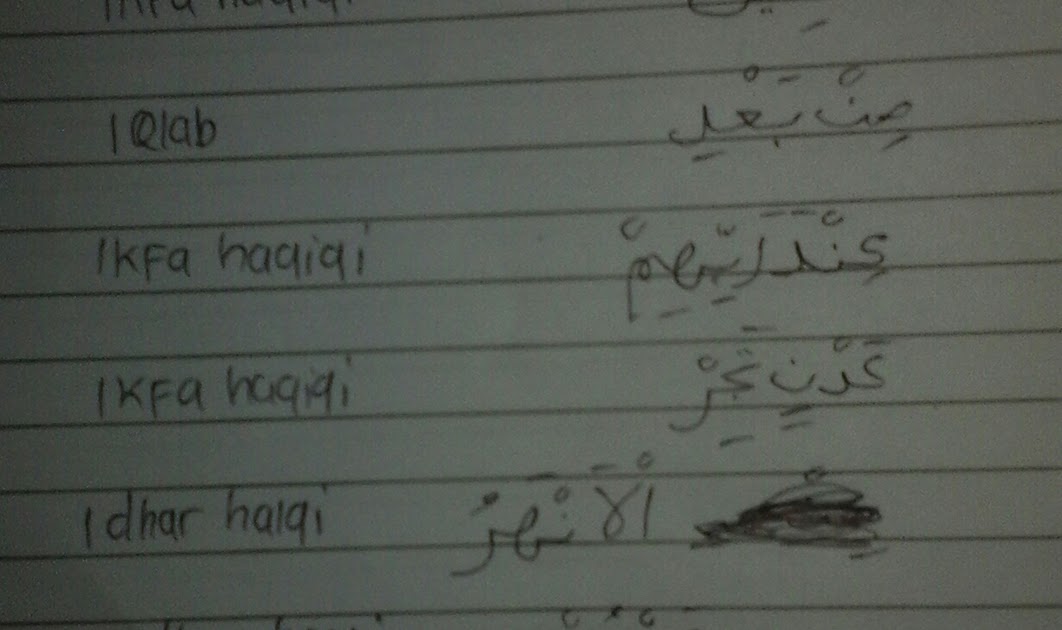 IQlab مِنْ بَعْدِ
Ikfa haqiqi عِنْدَ رَبِّهِمْ
Ikfa haqiqi عَدْنٍ تَجْرِ
Idhar halqi الْاَنْهٰرُ